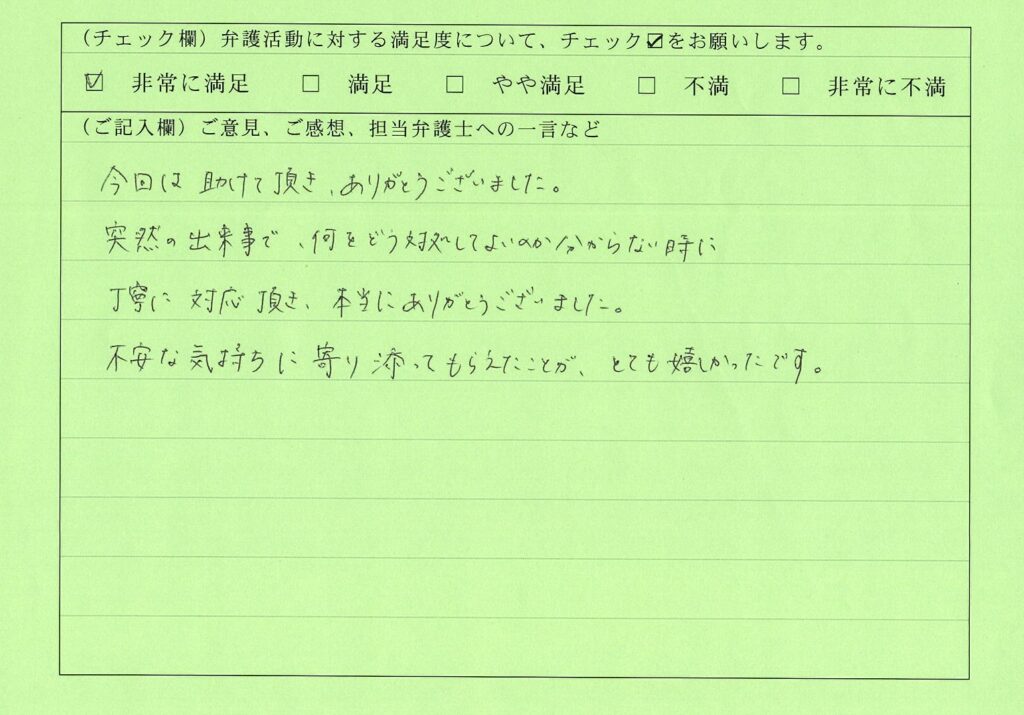 （チェック欄）弁護活動に対する満足度について、チェック☑をお願いします。
☑ 非常に満足 □ 満足 □ やや満足 □ 不満 □ 非常に不満
（ご記入欄）ご意見、ご感想、担当弁護士への一言など
今回は助けて頂き、ありがとうございました。
突然の出来事で、何をどう対処してよいのか分からない時に
丁寧に対応頂き、本当にありがとうございました。
不安な気持ちに寄り添ってもらえたことが、とても嬉しかったです。